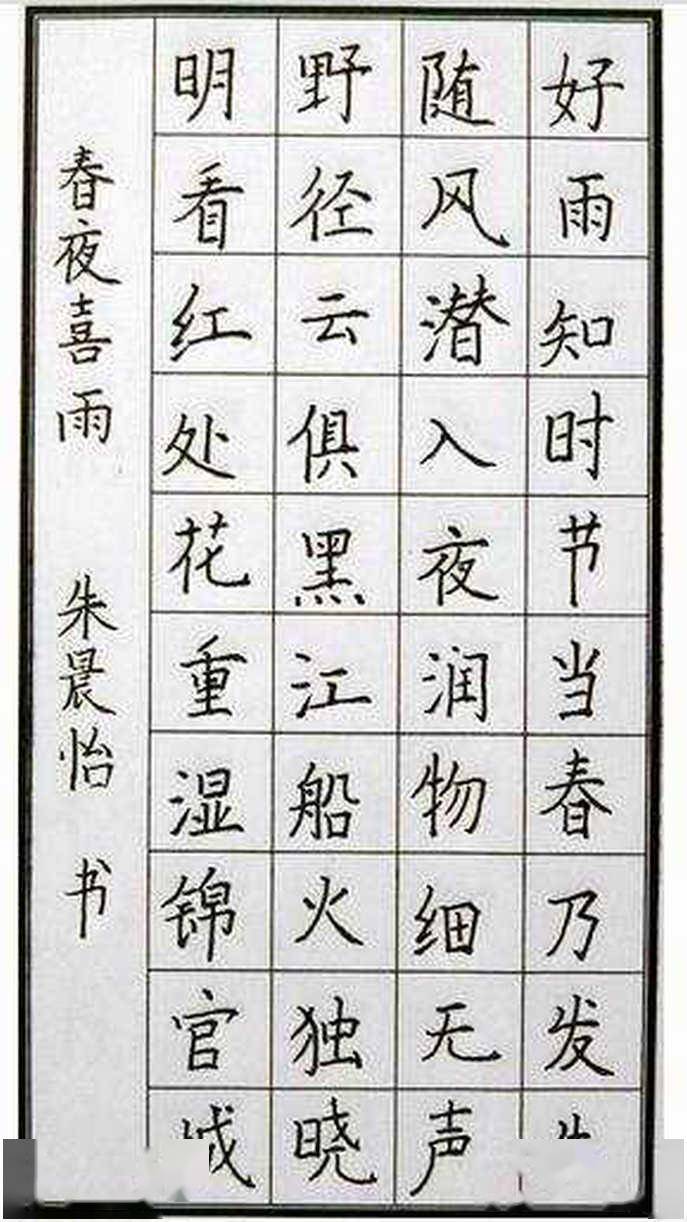 好雨知时节当春乃发
随风潜入夜润物细无声
野径云俱黑江船火独晓
明看红处花重湿锦官
春夜喜雨 朱晨怡 书